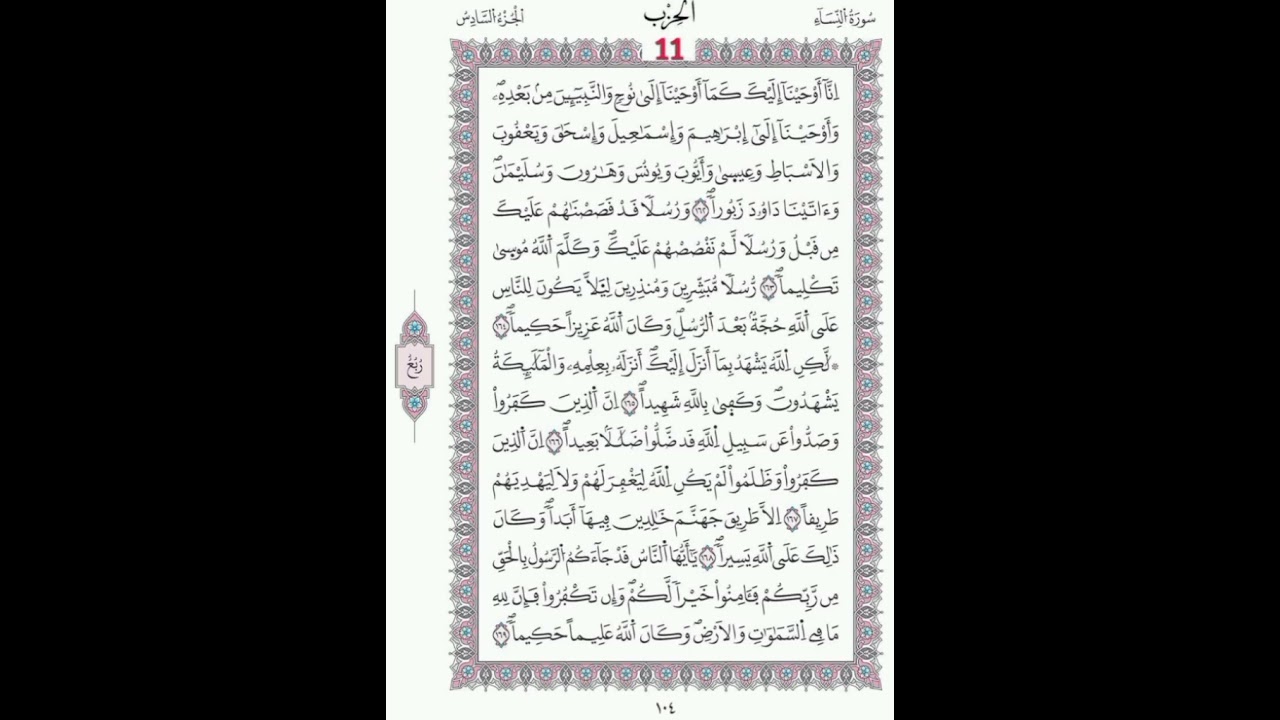 سُورَةُ النِّسَاءِ
الحِزْب
الجُزْءُ السَّادِسُ
11
اِنَّآ أَوْحَيْنَآ إِلَيْكَ كَمَآ أَوْحَيْنَآ إِلَىٰ نُوحٍ وَالنَّبِيٓـِٕينَ مِنۢ بَعْدِهِۦ
وَأَوْحَيْنَآ إِلَىٰٓ إِبْرَٰهِيمَ وَإِسْمَٰعِيلَ وَإِسْحَٰقَ وَيَعْقُوبَ
وَالَاسْبَاطِ وَعِيسىٰ وَأَيُّوبَ وَيُونُسَ وَهَٰرُونَ وَسُلَيْمَٰنَ
وَءَاتَيْنَا دَاوُۥدَ زَبُوراً ١٦٢ وَرُسُلًا قَدْ قَصَصْنَٰهُمْ عَلَيْكَ
مِن قَبْلُ وَرُسُلًا لَّمْ نَقْصُصْهُمْ عَلَيْكَ وَكَلَّمَ اَللَّهُ مُوسىٰ
تَكْلِيماً ١٦٣ رُّسُلًا مُّبَشِّرِينَ وَمُنذِرِينَ لِيَلَّا يَكُونَ لِلنَّاسِ
عَلَى اَللَّهِ حُجَّةُۢ بَعْدَ اَلرُّسُلِ وَكَانَ اَللَّهُ عَزِيزاً حَكِيماً ١٦٤
۞ لَّٰكِنِ اِللَّهُ يَشْهَدُ بِمَآ أَنزَلَ إِلَيْكَ أَنزَلَهُۥ بِعِلْمِهِۦ وَالْمَلَٰٓئِكَةُ
يَشْهَدُونَ وَكَفىٰ بِاللَّهِ شَهِيداً ١٦٥ اِنَّ اَلذِينَ كَفَرُواْ
وَصَدُّواْ عَن سَبِيلِ اِللَّهِ قَد ضَّلُّواْ ضَلَٰلًا بَعِيداً ١٦٦ اِنَّ اَلذِينَ
كَفَرُواْ وَظَلَمُواْ لَمْ يَكُنِ اِللَّهُ لِيَغْفِرَ لَهُمْ وَلَا لِيَهْدِيَهُمْ
طَرِيقاً ١٦٧ اِلَّا طَرِيقَ جَهَنَّمَ خَٰلِدِينَ فِيهَآ أَبَداً وَكَانَ
ذَٰلِكَ عَلَى اَللَّهِ يَسِيراً ١٦٨ يَٰٓأَيُّهَا اَلنَّاسُ قَدْ جَآءَكُمُ اُلرَّسُولُ بِالْحَقِّ
مِن رَّبِّكُمْ فَـَٔامِنُواْ خَيْراً لَّكُمْ وَإِن تَكْفُرُواْ فَإِنَّ لِلهِ
مَا فِے اِلسَّمَٰوَٰتِ وَالَارْضِ وَكَانَ اَللَّهُ عَلِيماً حَكِيماً ١٦٩
رُبُعُ
١٠٤